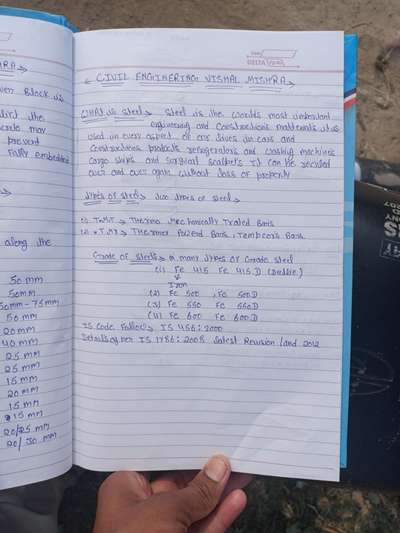 HRA →
ver Block is
crete may
prevent
Fully embedded
along the
50 mm
50mm
50mm - 75mm
50 mm
20mm
40 mm
25 mm
25 mm
15 mm
20 mm
15 mm
15 mm
20/25 mm
20/30 mm
DELTA
← CIVIL ENGINEERING: VISHAL MISHRA→
What is steel → Steel is the worlds most important
engineering and constructional materials it is
used in every aspect of our lives in cars and
constructions products refrigerators and washing machines
cargo ships and surgical scalpers it can be recycled
over and over again without loss of property
Types of steel → two types of steel →
(1) T.M.T → Thermo Mechanically Treated Bars
(2) T.M.T → Thermax Bars, Tempcore Bars
Grade of steels → many types of Grade steel
(1) Fe 415 Fe 415.D
↓
Iron
(2) Fe 500 , Fe 500D
(3) Fe 550 Fe 550D
(4) Fe 600 Fe 600D
IS Code Follow → IS 456:2000
Details of per IS 1786:2008 latest Revision / and 2012